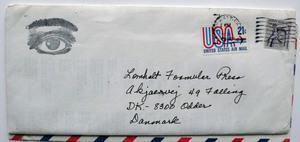 USA 21c
UNITED STATES AIR MAIL
Lomholt Formular Press
Akjaersvej 49 Falling
DK-8300 Odder
Danmark